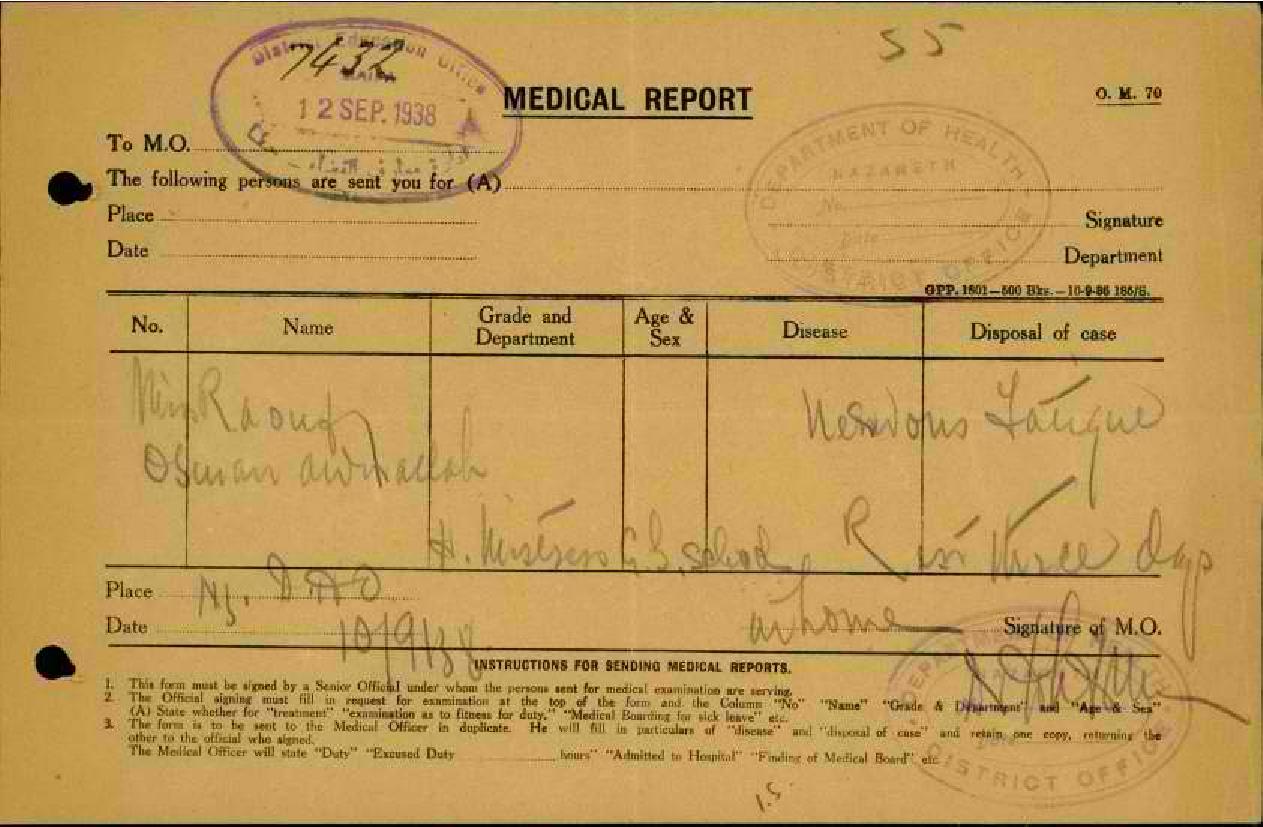 55
District Education Office
7432
HAIFA
12 SEP. 1938
MEDICAL REPORT
O. M. 70
To M.O.
DEPARTMENT OF HEALTH
NAZARETH
No.
Date
DISTRICT OFFICE
The following persons are sent you for (A)
Place
Signature
Date
Department
GPP. 1801—500 Bks.—10-9-36 185/S.
No. Name Grade and Department Age & Sex Disease Disposal of case
Miss Raouf
Osman
Nervous Fatigue
H. Mistress G. S. School
Rest three days
at home
Place Nz. D H O
Date 10/9/38
Signature of M.O.
DISTRICT OFFICE
INSTRUCTIONS FOR SENDING MEDICAL REPORTS.
1. This form must be signed by a Senior Official under whom the persons sent for medical examination are serving.
2. The Official signing must fill in request for examination at the top of the form and the Column "No" "Name" "Grade & Department" and "Age & Sex"
(A) State whether for "treatment" "examination as to fitness for duty," "Medical Boarding for sick leave" etc.
3. The form is to be sent to the Medical Officer in duplicate. He will fill in particulars of "disease" and "disposal of case" and retain one copy, returning the
other to the official who signed.
The Medical Officer will state "Duty" "Excused Duty hours" "Admitted to Hospital" "Finding of Medical Board" etc.